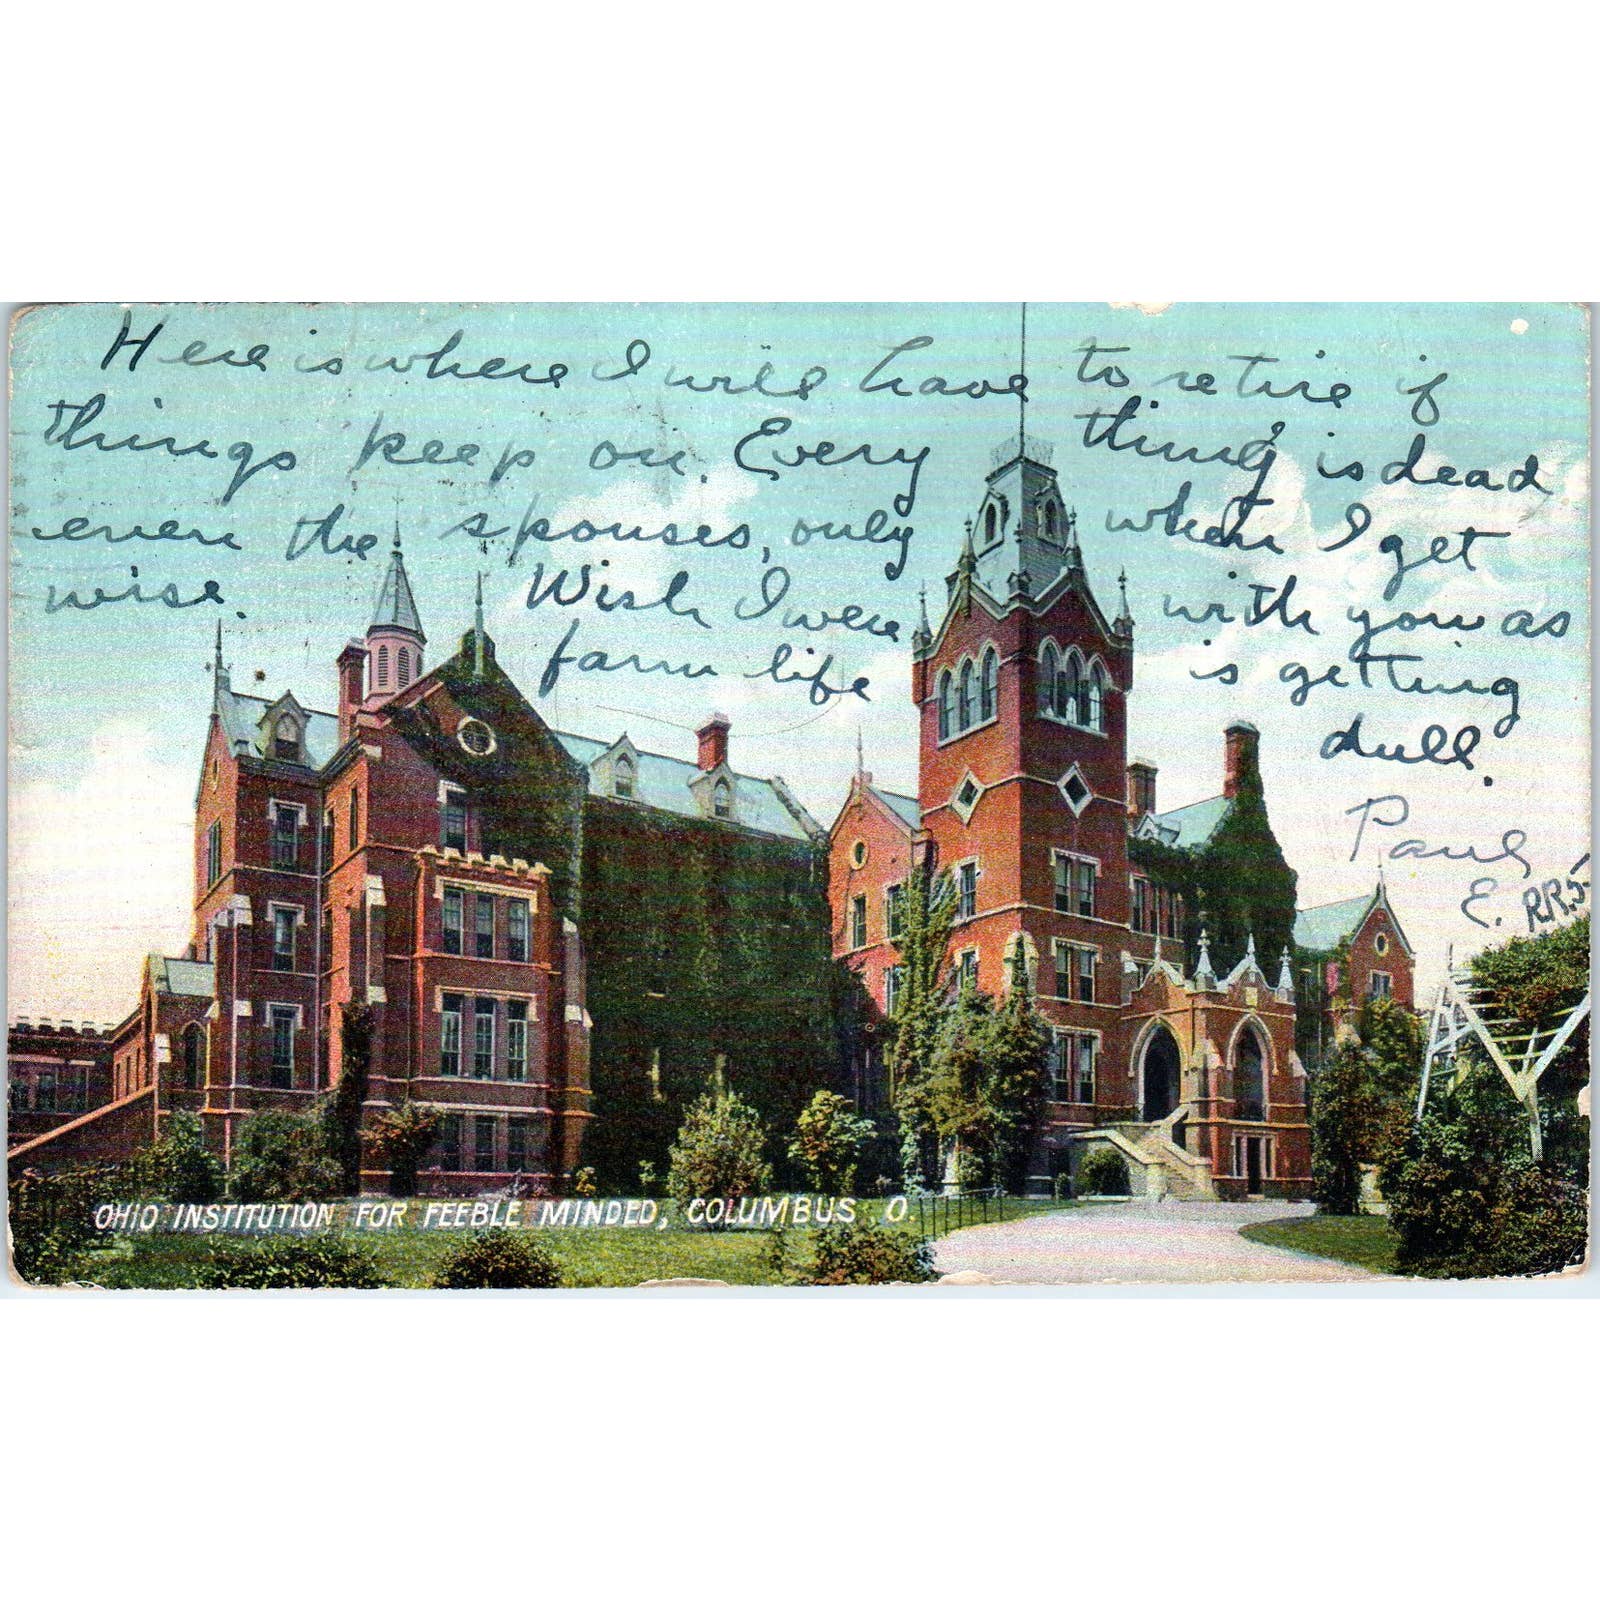 Here is where I will have to retire if
things keep on. Every thing is dead
even the spouses, only when I get
wise. Wish I were with you as
farm life is getting
dull.
Paul
E. RR5
OHIO INSTITUTION FOR FEEBLE MINDED, COLUMBUS O.